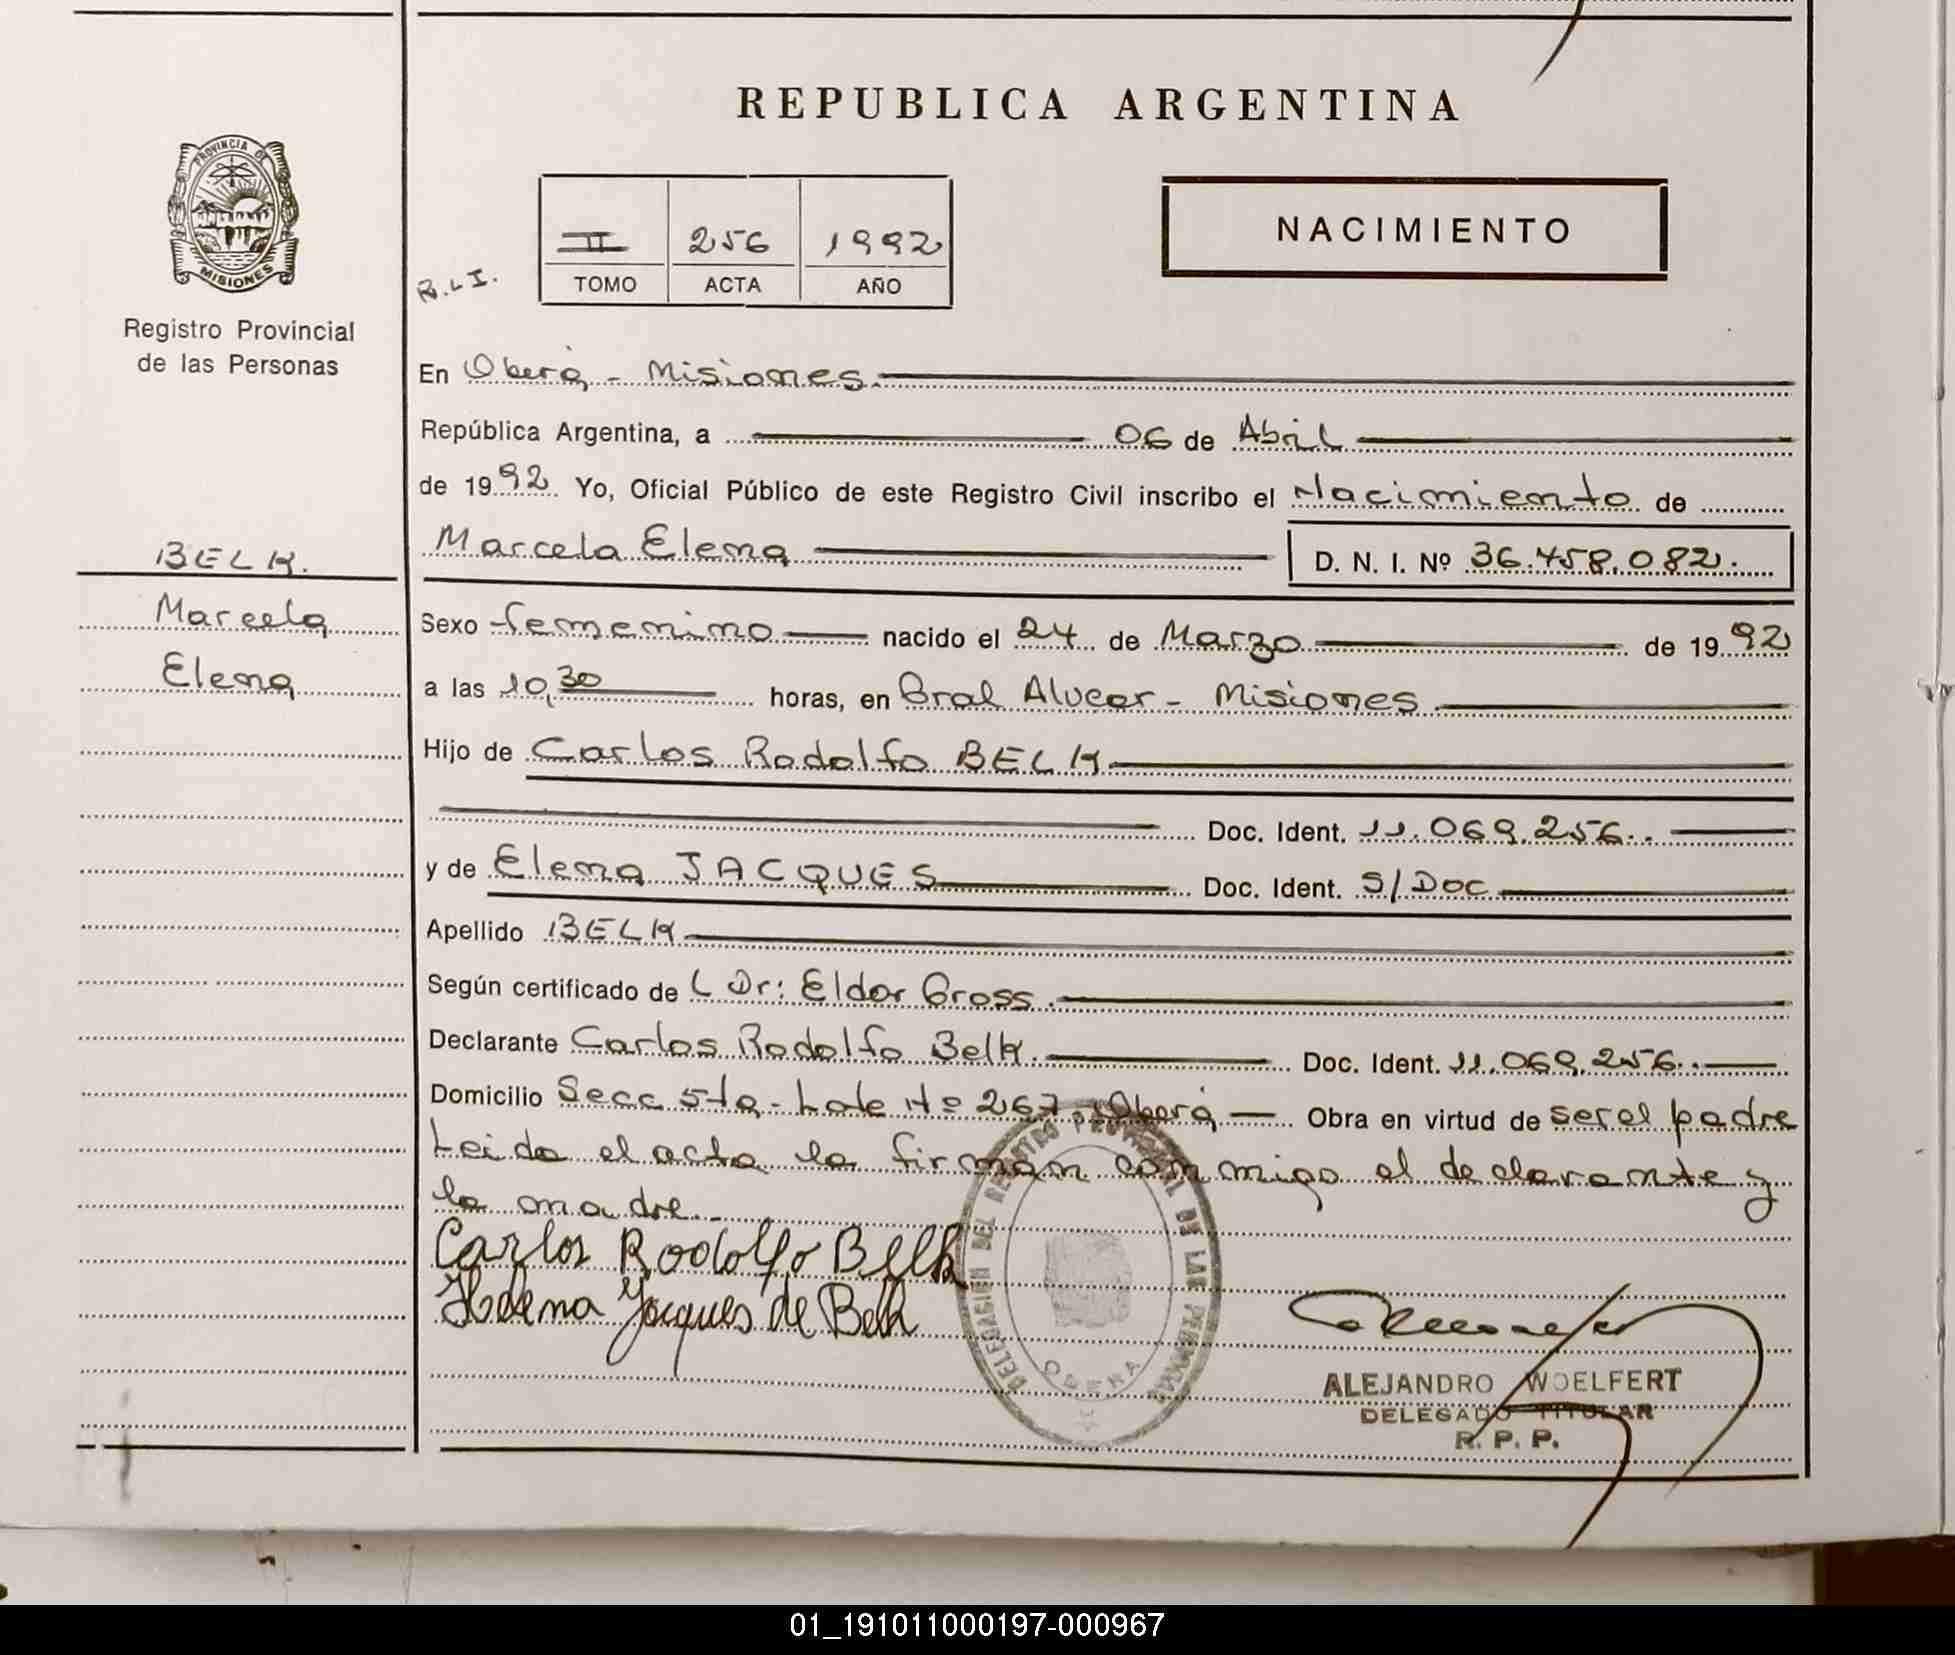 REPUBLICA ARGENTINA
PROVINCIA DE
MISIONES
Registro Provincial
de las Personas
R.L.I.
II 256 1992
TOMO ACTA AÑO
NACIMIENTO
En Oberá - Misiones.
República Argentina, a 06 de Abril
de 1992. Yo, Oficial Público de este Registro Civil inscribo el Nacimiento de
Marcela Elena D. N. I. Nº 36.458.082.
BELK.
Marcela
Elena
Sexo femenino nacido el 24 de Marzo de 1992
a las 10,30 horas, en Gral Alvear - Misiones.
Hijo de Carlos Rodolfo BELK
Doc. Ident. 11.069.256.
y de Elena JACQUES Doc. Ident. S/Doc
Apellido BELK
Según certificado de L Dr: Eldor Gross.
Declarante Carlos Rodolfo Belk. Doc. Ident. 11.069.256.
Domicilio Secc 5ta - Lote Nº 267. Oberá Obra en virtud de ser el padre
Leida el acta la firman conmigo el declarante y
la madre.-
Carlos Rodolfo Belk
Helena Jacques de Belk
DELEGACION DEL REGISTRO PROVINCIAL DE LAS PERSONAS
OBERA
ALEJANDRO WOELFERT
DELEGADO TITULAR
R. P. P.
01_191011000197-000967